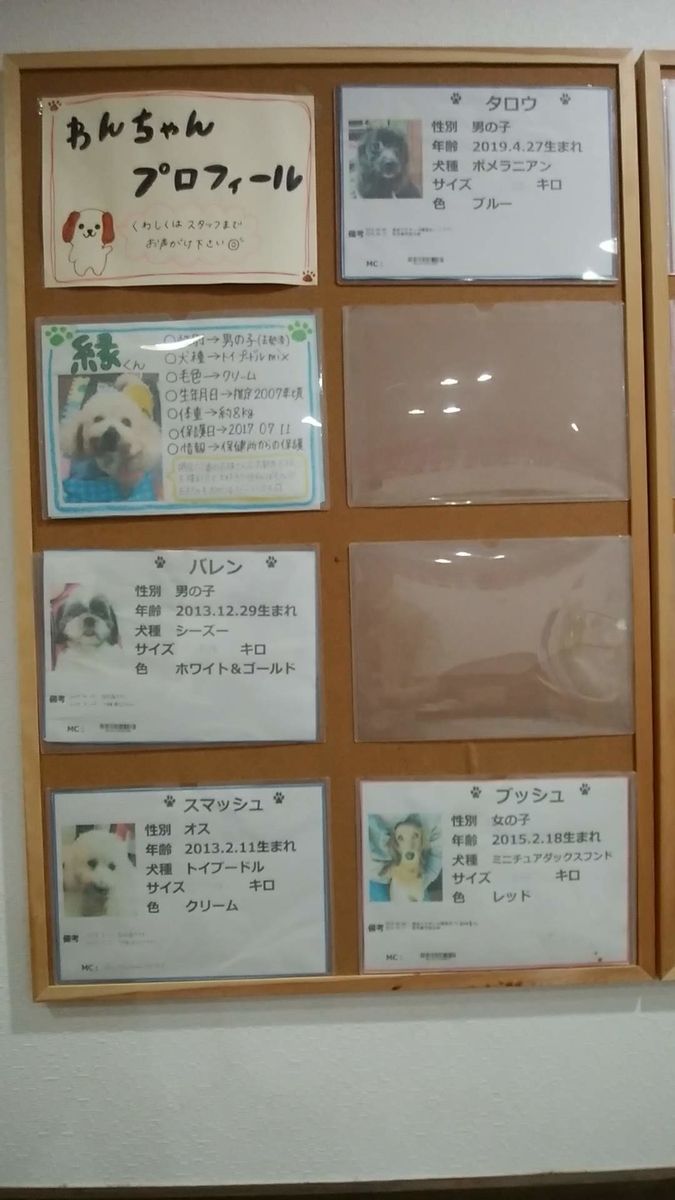 わんちゃん
プロフィール
くわしくは スタッフまで
お声がけ下さい
タロウ
性別 男の子
年齢 2019.4.27生まれ
犬種 ポメラニアン
サイズ キロ
色 ブルー
備考
MC:
縁くん
○性別→男の子
○犬種→トイプードルmix
○毛色→クリーム
○生年月日→推定2007年頃
○体重→約8kg
○保護日→2017 07 11
○情報→保健所からの保護
バレン
性別 男の子
年齢 2013.12.29生まれ
犬種 シーズー
サイズ キロ
色 ホワイト&ゴールド
備考
MC:
スマッシュ
性別 オス
年齢 2013.2.11生まれ
犬種 トイプードル
サイズ キロ
色 クリーム
備考
MC:
ブッシュ
性別 女の子
年齢 2015.2.18生まれ
犬種 ミニチュアダックスフンド
サイズ キロ
色 レッド
備考
MC: